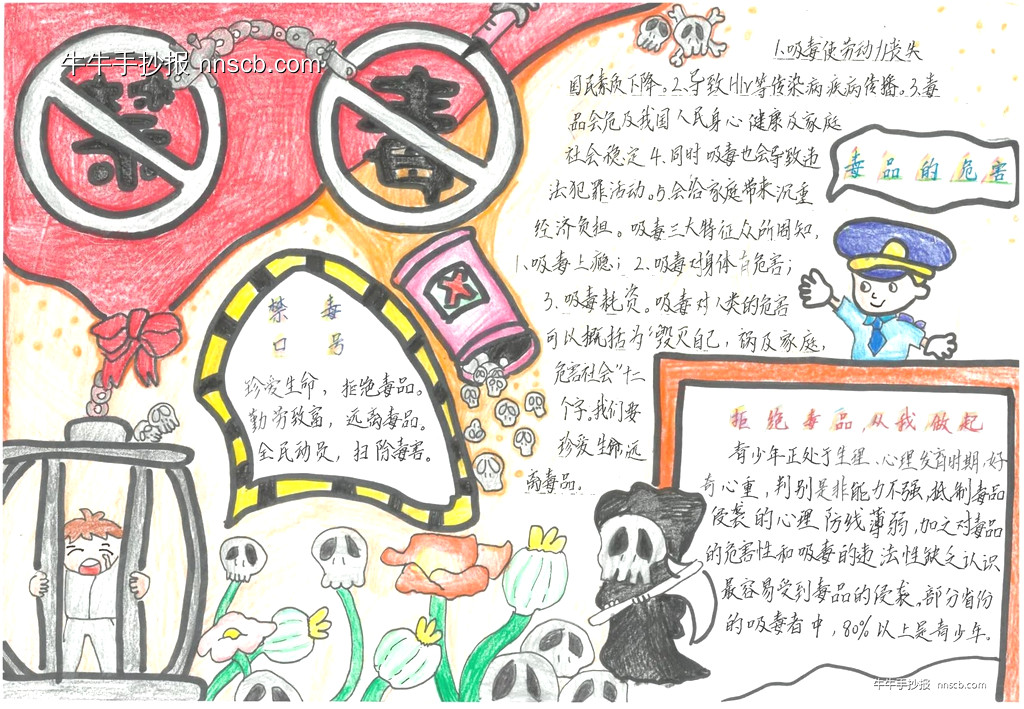 牛牛手抄报 nnscb.com
禁 毒
毒品的危害
1、吸毒使劳动力丧失
国民素质下降。2.导致HIV等传染病疾病传播。3.毒
品会危及我国人民身心健康及家庭
社会稳定4.同时吸毒也会导致违
法犯罪活动。5.会给家庭带来沉重
经济负担。吸毒三大特征众所周知,
1、吸毒上瘾;2、吸毒对身体有危害;
3、吸毒耗资。吸毒对人类的危害
可以概括为“毁灭自己,祸及家庭,
危害社会”十二
个字。我们要
珍爱生命,远
离毒品。
禁毒
口号
珍爱生命,拒绝毒品。
勤劳致富,远离毒品。
全民动员,扫除毒害。
拒绝毒品,从我做起
青少年正处于生理、心理发育时期,好
奇心重,判别是非能力不强,抵制毒品
侵袭的心理防线薄弱,加之对毒品
的危害性和吸毒的违法性缺乏认识
最容易受到毒品的侵袭。部分省份
的吸毒者中,80%以上是青少年。
牛牛手抄报 nnscb.com